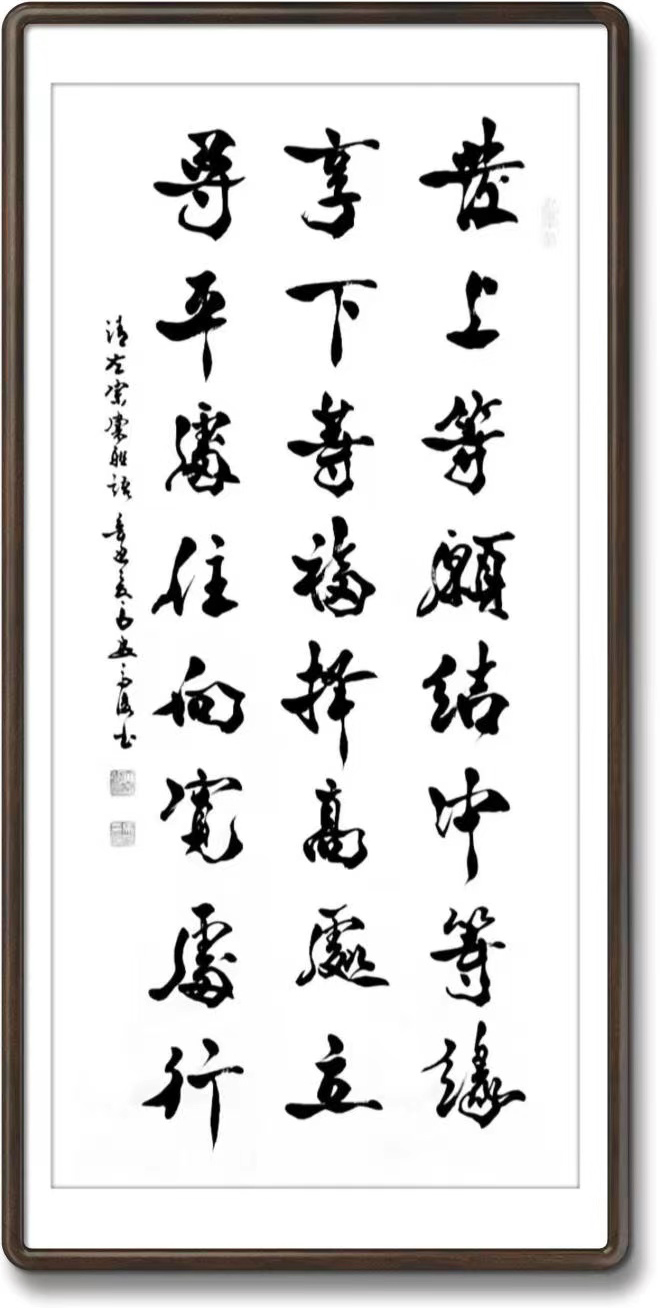 發上等願結中等緣
享下等福择高處立
尋平處住向寬處行
清左宗棠聯語 辛丑夏 书